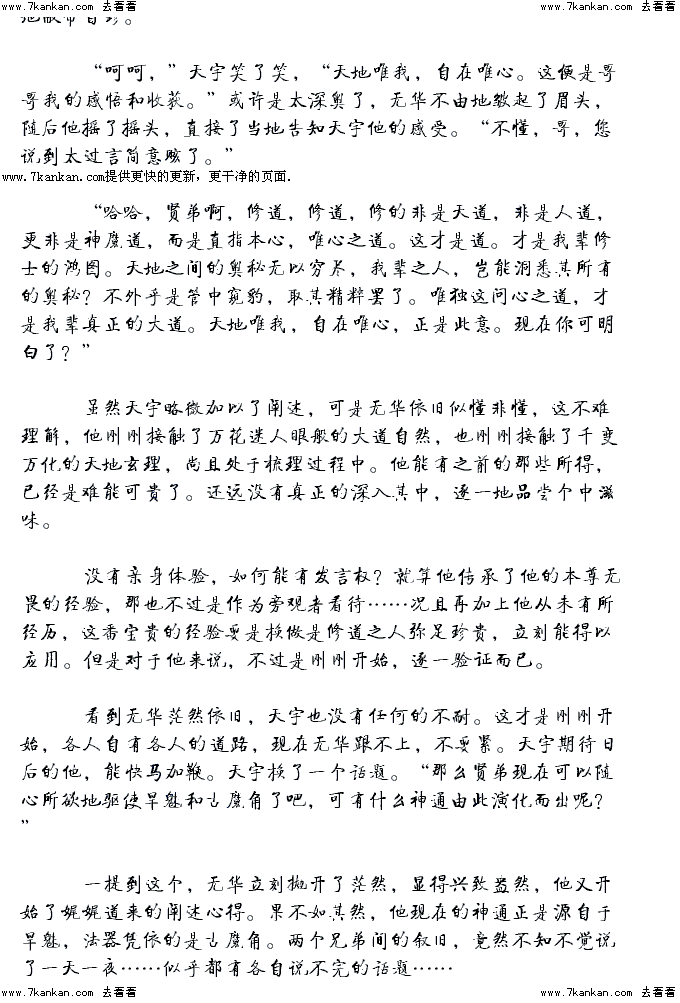 www.7kankan.com 去看看 www.7kankan.com 去看看
地敝帚自珍。
“呵呵，”天宇笑了笑，“天地唯我，自在唯心。这便是哥
哥我的感悟和收获。”或许是太深奥了，无华不由地皱起了眉头，
随后他摇了摇头，直接了当地告知天宇他的感受。“不懂，哥，您
说到太过言简意赅了。”
www.7kankan.com提供更快的更新，更干净的页面.
“哈哈，贤弟啊，修道，修道，修的非是天道，非是人道，
更非是神魔道，而是直指本心，唯心之道。这才是道。才是我辈修
士的鸿图。天地之间的奥秘无以穷尽，我辈之人，岂能洞悉其所有
的奥秘？不外乎是管中窥豹，取其精粹罢了。唯独这问心之道，才
是我辈真正的大道。天地唯我，自在唯心，正是此意。现在你可明
白了？”
虽然天宇略微加以了阐述，可是无华依旧似懂非懂，这不难
理解，他刚刚接触了万花迷人眼般的大道自然，也刚刚接触了千变
万化的天地玄理，尚且处于梳理过程中。他能有之前的那些所得，
已经是难能可贵了。还远没有真正的深入其中，逐一地品尝个中滋
味。
没有亲身体验，如何能有发言权？就算他传承了他的本尊无
畏的经验，那也不过是作为旁观者看待……况且再加上他从未有所
经历，这番宝贵的经验要是换做是修道之人弥足珍贵，立刻能得以
应用。但是对于他来说，不过是刚刚开始，逐一验证而已。
看到无华茫然依旧，天宇也没有任何的不耐。这才是刚刚开
始，各人自有各人的道路，现在无华跟不上，不要紧。天宇期待日
后的他，能快马加鞭。天宇换了一个话题。“那么贤弟现在可以随
心所欲地驱使旱魃和古魔角了吧，可有什么神通由此演化而出呢？
”
一提到这个，无华立刻抛开了茫然，显得兴致盎然，他又开
始了娓娓道来的阐述心得。果不如其然，他现在的神通正是源自于
旱魃，法器凭依的是古魔角。两个兄弟间的叙旧，竟然不知不觉说
了一天一夜……似乎都有各自说不完的话题……
www.7kankan.com 去看看 www.7kankan.com 去看看